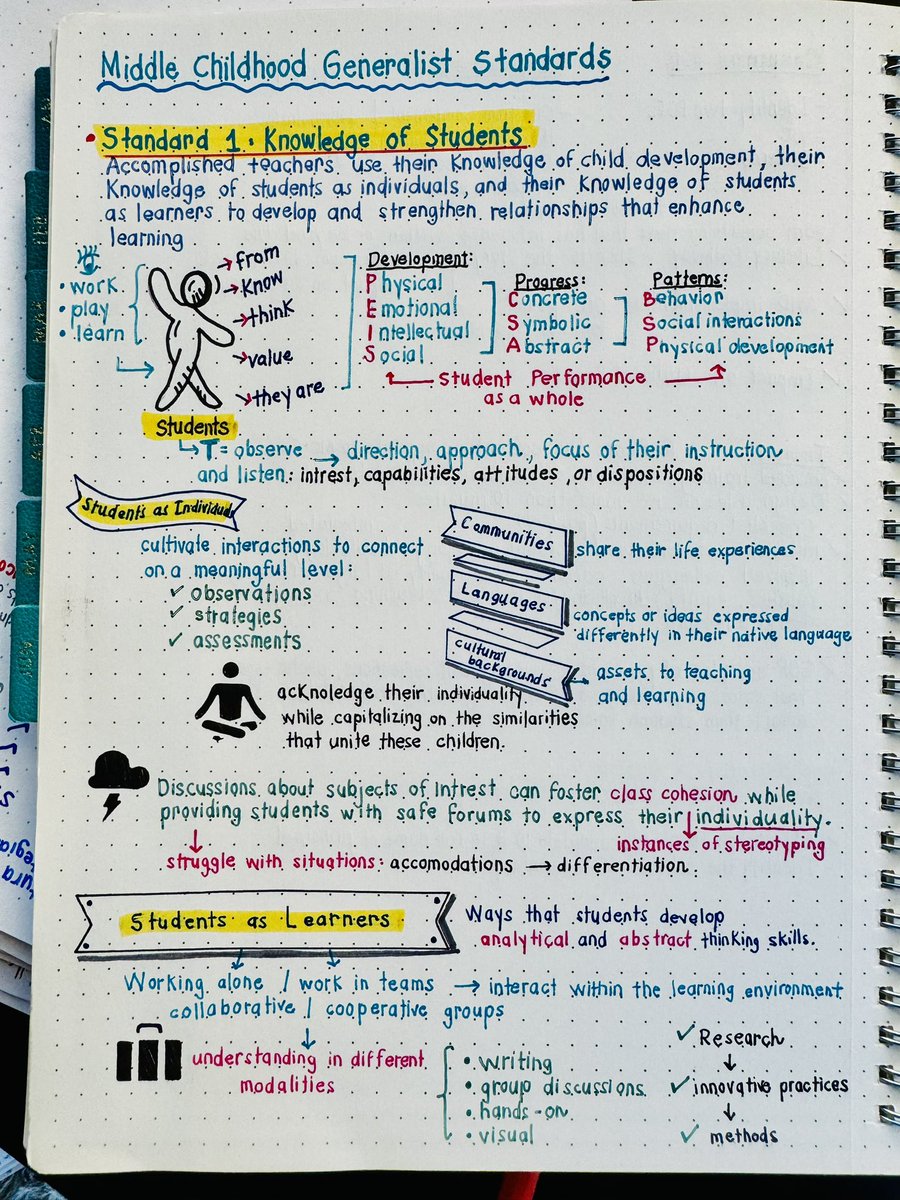 Middle Childhood Generalist Standards
• Standard 1. Knowledge of Students
Accomplished teachers use their Knowledge of child development, their
Knowledge of students as individuals, and their Knowledge of students
as learners to develop and strengthen relationships that enhance
learning
• work
• play
• learn
from
Know
think
value
they are
Students
Development:
Physical
Emotional
Intellectual
Social
Progress:
Concrete
Symbolic
Abstract
Patterns:
Behavior
Social interactions
Physical development
Student Performance
as a whole
T = observe → direction, approach, focus of their instruction
and listen: intrest, capabilities, attitudes, or dispositions
Students as Individuals
cultivate interactions to connect
on a meaningful level:
✓ observations
✓ strategies
✓ assessments
Communities
share their life experiences
Languages
concepts or ideas expressed
differently in their native language
cultural
backgrounds
assets to teaching
and learning
acknoledge their individuality
while capitalizing on the similarities
that unite these children.
Discussions about subjects of intrest can foster class cohesion while
providing students with safe forums to express their individuality.
instances of stereotyping
struggle with situations: accomodations → differentiation.
Students as Learners
Ways that students develop
analytical and abstract thinking skills.
Working alone / work in teams → interact within the learning environment
collaborative / cooperative groups
understanding in different
modalities
• writing
• group discussions
• hands-on
• visual
✓ Research
✓ innovative practices
✓ methods